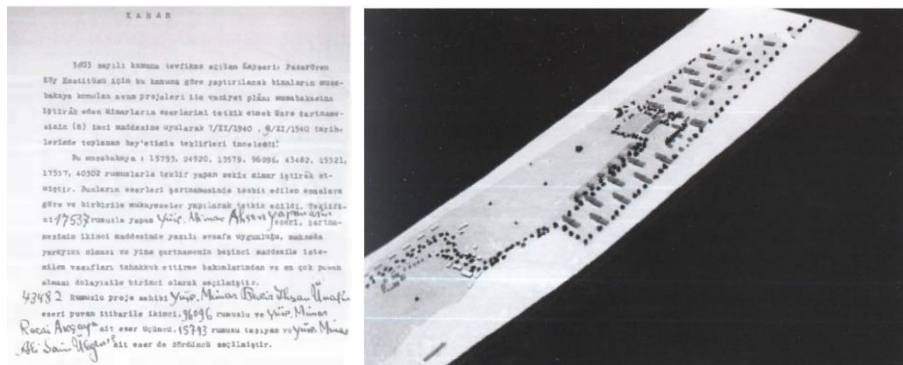 K A R A R
3803 sayılı kanuna tevfikan açılan Kayseri: Pazarören
Köy Enstitüsü için bu kanuna göre yaptırılacak binaların müsa-
bakaya konulan avan projeleri ile vaziyet plânı müsabakasına
iştirâk eden Mimarların eserlerini tetkik etmek üzre şartname-
sinin (8) inci maddesine uyularak 7/XI/1940 , 8/XI/1940 tarih-
lerinde toplanan hey'etimiz teklifleri inceledi:
Bu müsabakaya : 15793, 24920, 13579, 96096, 43482, 15321,
17537, 40302 rumuzlarla teklif yapan sekiz mimar iştirâk et-
miştir. Bunların eserleri şartnamesinde tesbit edilen esaslara
göre ve birbirile mukayeseler yapılarak tetkik edildi. Teklifi-
ni 17537 rumuzla yapan Yük. Mimar Ahsen Yapanar'ın eseri, şartna-
mesinin ikinci maddesinde yazılı evsafa uygunluğu, maksada
yarayışlı olması ve yine şartnamenin beşinci maddesile iste-
nilen vasıfları tahakkuk ettirme bakımlarından ve en çok puvan
alması dolayısile birinci olarak seçilmiştir.
43482 Rumuzlu proje sahibi Yük. Mimar
eseri puvan itibarile ikinci, 96096 rumuzlu ve Yük. Mimar
Recai Akçay'a ait eser üçüncü, 15793 rumuzu taşıyan ve Yük. Mimar
ait eser de dördüncü seçilmiştir.